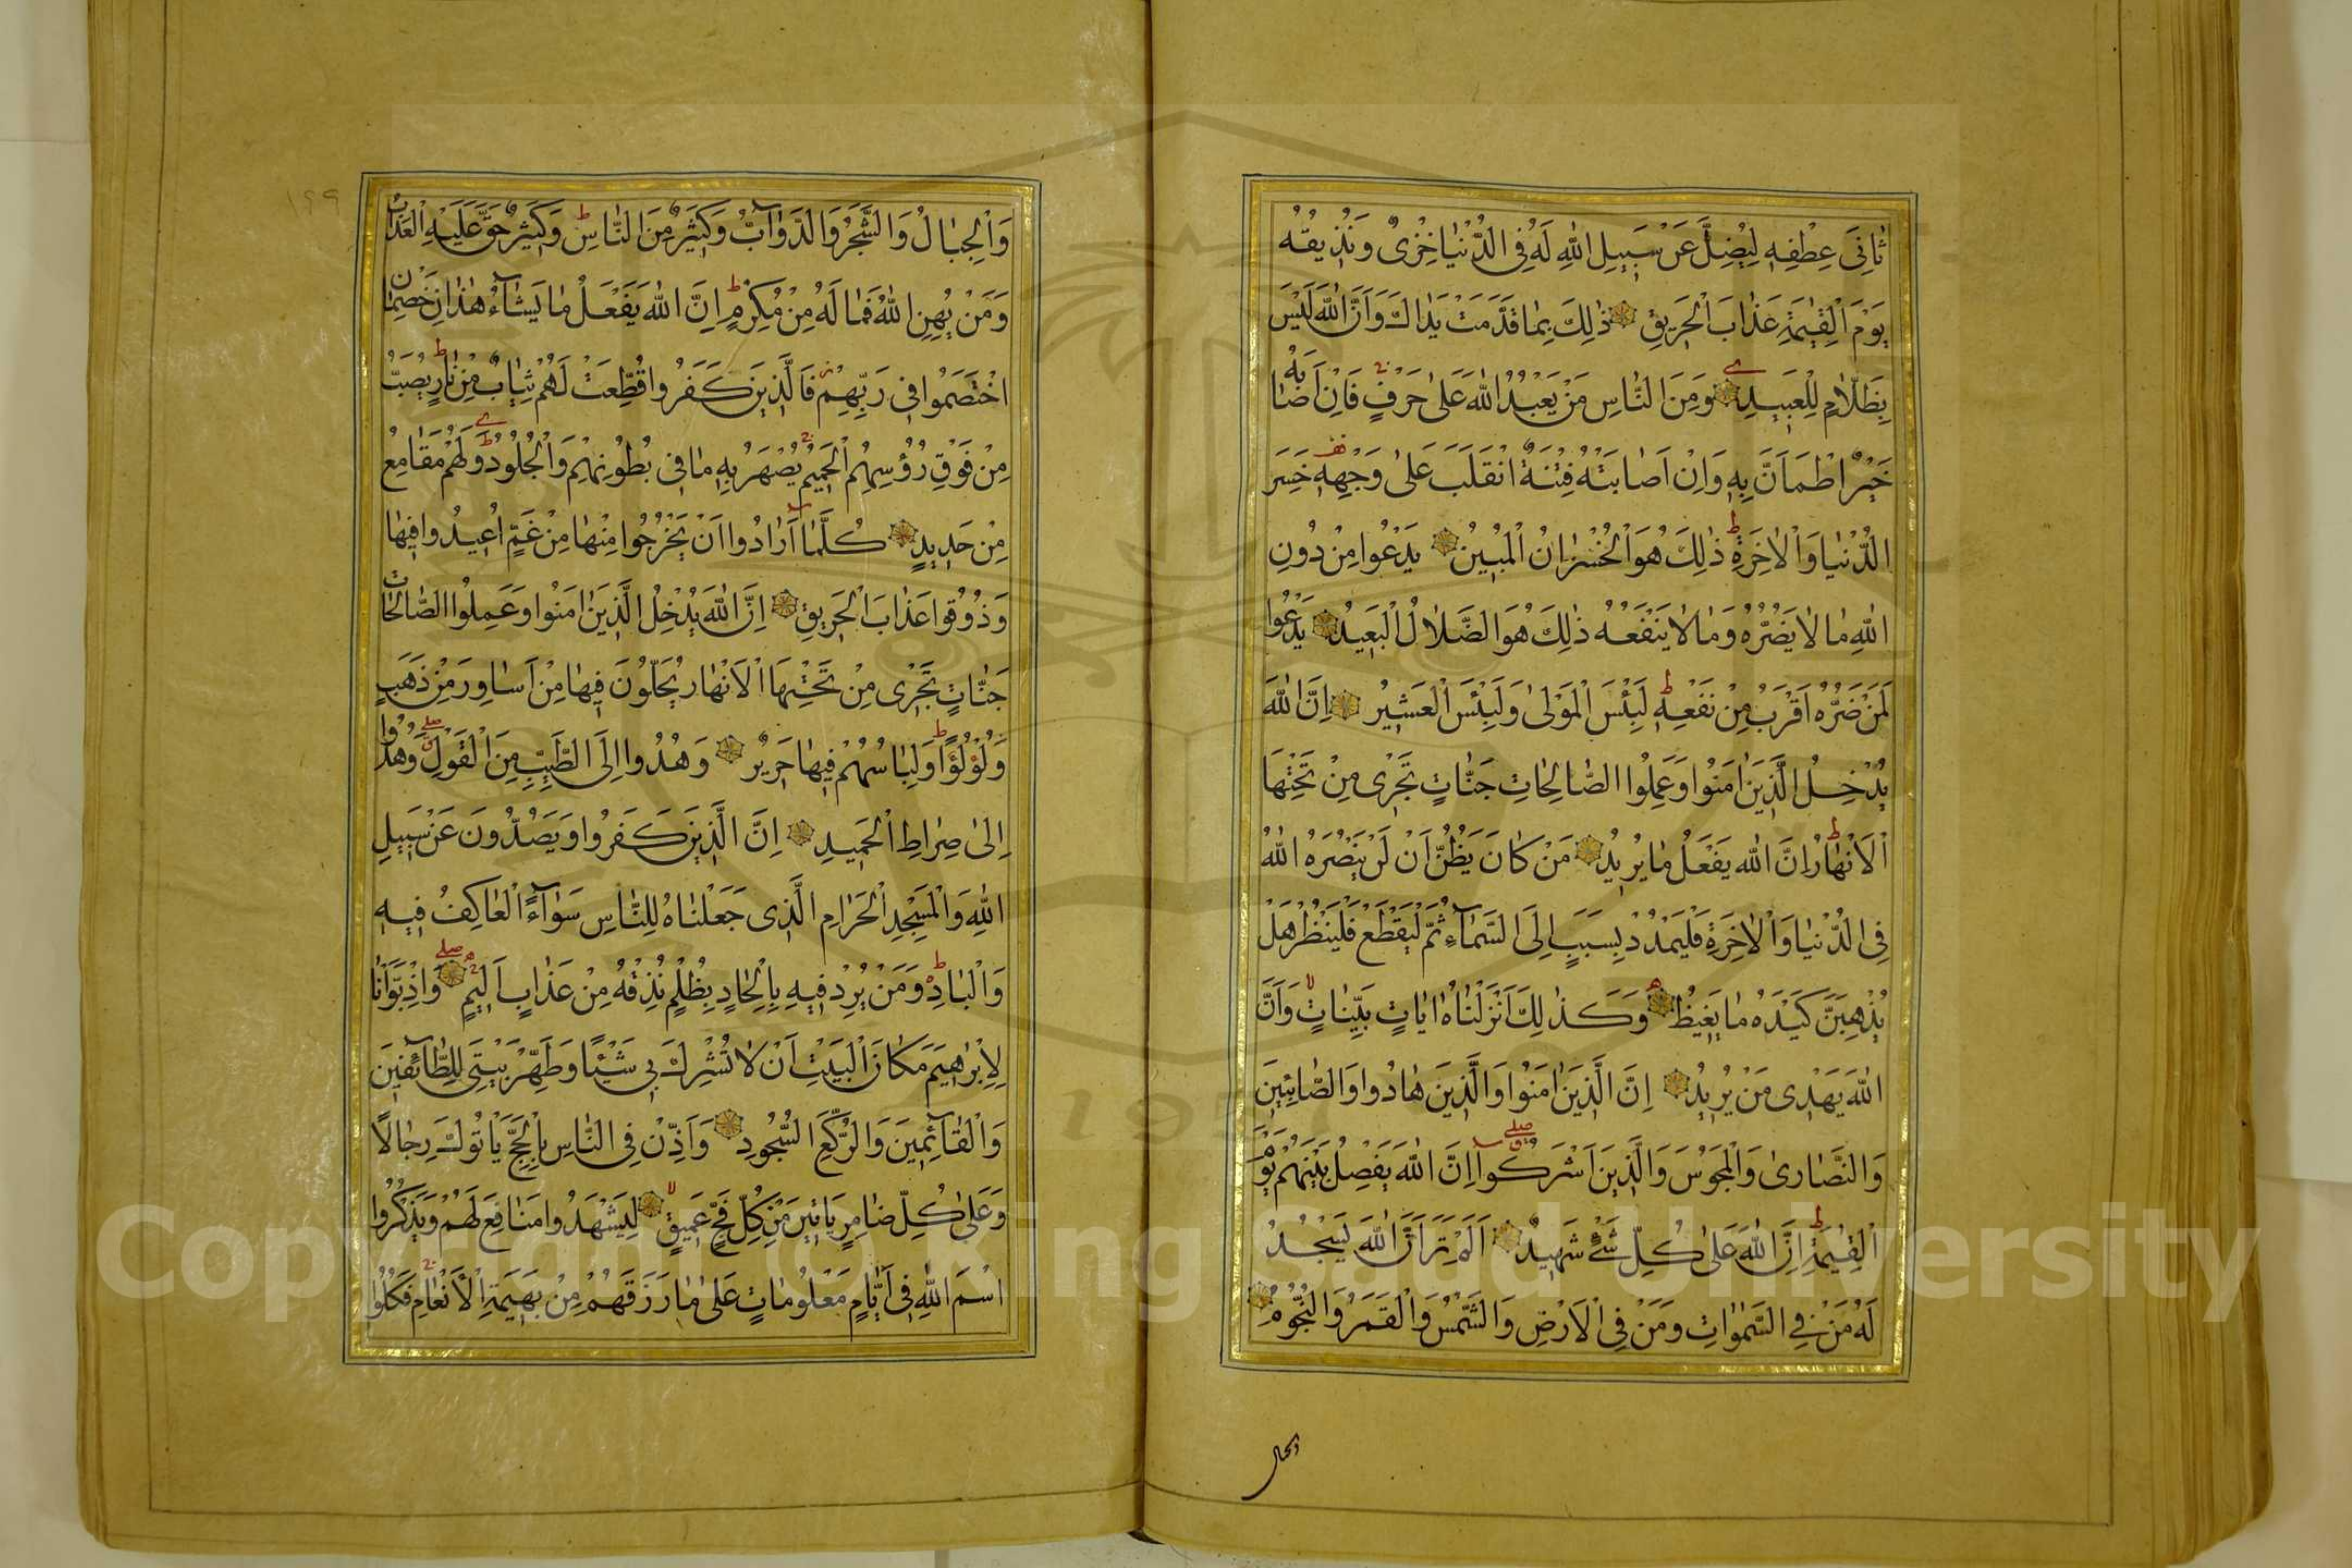 ثَانِىَ عِطْفِهِ لِيُضِلَّ عَنْ سَبِيلِ اللّٰهِ لَهُ فِى الدُّنْيَا خِزْىٌ وَنُذِيقُهُ
يَوْمَ الْقِيٰمَةِ عَذَابَ الْحَرِيقِ ذٰلِكَ بِمَا قَدَّمَتْ يَدَاكَ وَاَنَّ اللّٰهَ لَيْسَ
بِظَلَّامٍ لِلْعَبِيدِ وَمِنَ النَّاسِ مَنْ يَعْبُدُ اللّٰهَ عَلٰى حَرْفٍ فَاِنْ اَصَابَهُ
خَيْرٌ اطْمَاَنَّ بِهِ وَاِنْ اَصَابَتْهُ فِتْنَةٌ انْقَلَبَ عَلٰى وَجْهِهِ خَسِرَ
الدُّنْيَا وَالْاٰخِرَةِ ذٰلِكَ هُوَ الْخُسْرَانُ الْمُبِينُ يَدْعُوا مِنْ دُونِ
اللّٰهِ مَا لَا يَضُرُّهُ وَمَا لَا يَنْفَعُهُ ذٰلِكَ هُوَ الضَّلَالُ الْبَعِيدُ يَدْعُوا
لَمَنْ ضَرُّهُ اَقْرَبُ مِنْ نَفْعِهِ لَبِئْسَ الْمَوْلٰى وَلَبِئْسَ الْعَشِيرُ اِنَّ اللّٰهَ
يُدْخِلُ الَّذِينَ اٰمَنُوا وَعَمِلُوا الصَّالِحَاتِ جَنَّاتٍ تَجْرِى مِنْ تَحْتِهَا
الْاَنْهَارُ اِنَّ اللّٰهَ يَفْعَلُ مَا يُرِيدُ مَنْ كَانَ يَظُنُّ اَنْ لَنْ يَنْصُرَهُ اللّٰهُ
فِى الدُّنْيَا وَالْاٰخِرَةِ فَلْيَمْدُدْ بِسَبَبٍ اِلَى السَّمَآءِ ثُمَّ لْيَقْطَعْ فَلْيَنْظُرْ هَلْ
يُذْهِبَنَّ كَيْدُهُ مَا يَغِيظُ وَكَذٰلِكَ اَنْزَلْنَاهُ اٰيَاتٍ بَيِّنَاتٍ وَاَنَّ
اللّٰهَ يَهْدِى مَنْ يُرِيدُ اِنَّ الَّذِينَ اٰمَنُوا وَالَّذِينَ هَادُوا وَالصَّابِئِينَ
وَالنَّصَارٰى وَالْمَجُوسَ وَالَّذِينَ اَشْرَكُوا اِنَّ اللّٰهَ يَفْصِلُ بَيْنَهُمْ يَوْمَ
الْقِيٰمَةِ اِنَّ اللّٰهَ عَلٰى كُلِّ شَىْءٍ شَهِيدٌ اَلَمْ تَرَ اَنَّ اللّٰهَ يَسْجُدُ
لَهُ مَنْ فِى السَّمٰوَاتِ وَمَنْ فِى الْاَرْضِ وَالشَّمْسُ وَالْقَمَرُ وَالنُّجُومُ
والجبال
١٩٩
وَالْجِبَالُ وَالشَّجَرُ وَالدَّوَآبُّ وَكَثِيرٌ مِنَ النَّاسِ وَكَثِيرٌ حَقَّ عَلَيْهِ الْعَذَابُ
وَمَنْ يُهِنِ اللّٰهُ فَمَا لَهُ مِنْ مُكْرِمٍ اِنَّ اللّٰهَ يَفْعَلُ مَا يَشَآءُ هٰذَانِ خَصْمَانِ
اخْتَصَمُوا فِى رَبِّهِمْ فَالَّذِينَ كَفَرُوا قُطِّعَتْ لَهُمْ ثِيَابٌ مِنْ نَارٍ يُصَبُّ
مِنْ فَوْقِ رُؤُسِهِمُ الْحَمِيمُ يُصْهَرُ بِهِ مَا فِى بُطُونِهِمْ وَالْجُلُودُ وَلَهُمْ مَقَامِعُ
مِنْ حَدِيدٍ كُلَّمَا اَرَادُوا اَنْ يَخْرُجُوا مِنْهَا مِنْ غَمٍّ اُعِيدُوا فِيهَا
وَذُوقُوا عَذَابَ الْحَرِيقِ اِنَّ اللّٰهَ يُدْخِلُ الَّذِينَ اٰمَنُوا وَعَمِلُوا الصَّالِحَاتِ
جَنَّاتٍ تَجْرِى مِنْ تَحْتِهَا الْاَنْهَارُ يُحَلَّوْنَ فِيهَا مِنْ اَسَاوِرَ مِنْ ذَهَبٍ
وَلُؤْلُؤًا وَلِبَاسُهُمْ فِيهَا حَرِيرٌ وَهُدُوا اِلَى الطَّيِّبِ مِنَ الْقَوْلِ وَهُدُوا
اِلٰى صِرَاطِ الْحَمِيدِ اِنَّ الَّذِينَ كَفَرُوا وَيَصُدُّونَ عَنْ سَبِيلِ
اللّٰهِ وَالْمَسْجِدِ الْحَرَامِ الَّذِى جَعَلْنَاهُ لِلنَّاسِ سَوَآءً الْعَاكِفُ فِيهِ
وَالْبَادِ وَمَنْ يُرِدْ فِيهِ بِاِلْحَادٍ بِظُلْمٍ نُذِقْهُ مِنْ عَذَابٍ اَلِيمٍ وَاِذْ بَوَّأْنَا
لِاِبْرٰهِيمَ مَكَانَ الْبَيْتِ اَنْ لَا تُشْرِكْ بِى شَيْئًا وَطَهِّرْ بَيْتِىَ لِلطَّآئِفِينَ
وَالْقَآئِمِينَ وَالرُّكَّعِ السُّجُودِ وَاَذِّنْ فِى النَّاسِ بِالْحَجِّ يَاْتُوكَ رِجَالًا
وَعَلٰى كُلِّ ضَامِرٍ يَاْتِينَ مِنْ كُلِّ فَجٍّ عَمِيقٍ لِيَشْهَدُوا مَنَافِعَ لَهُمْ وَيَذْكُرُوا
اسْمَ اللّٰهِ فِى اَيَّامٍ مَعْلُومَاتٍ عَلٰى مَا رَزَقَهُمْ مِنْ بَهِيمَةِ الْاَنْعَامِ فَكُلُوا
Copyright © King Saud University